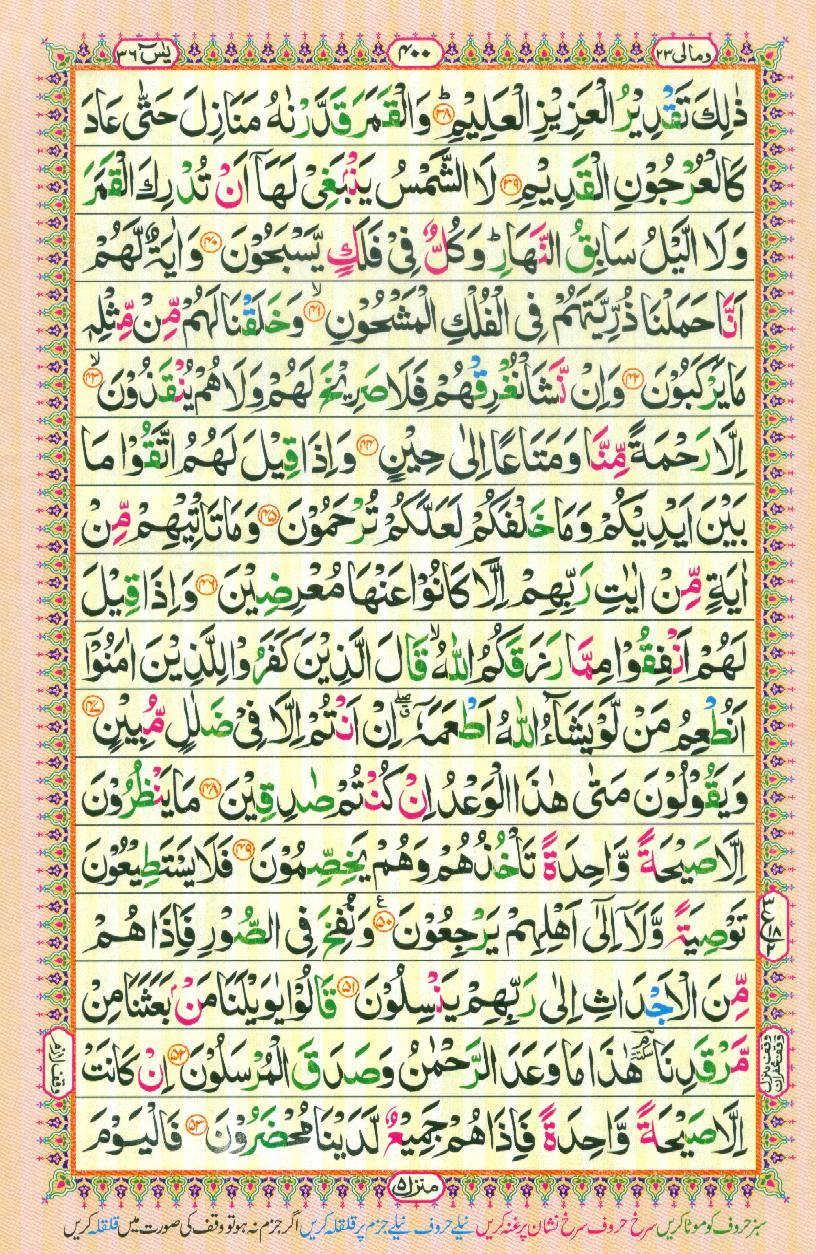 ومالی ۲۳
۴۰۰
یٰسٓ ۳۶
ذٰلِكَ تَقْدِيْرُ الْعَزِيْزِ الْعَلِيْمِ ؕ ﴿۳۸﴾ وَالْقَمَرَ قَدَّرْنٰهُ مَنَازِلَ حَتّٰى عَادَ
كَالْعُرْجُوْنِ الْقَدِيْمِ ﴿۳۹﴾ لَا الشَّمْسُ يَنْۢبَغِىْ لَهَاۤ اَنْ تُدْرِكَ الْقَمَرَ
وَلَا الَّيْلُ سَابِقُ النَّهَارِ ؕ وَكُلٌّ فِىْ فَلَكٍ يَّسْبَحُوْنَ ﴿۴۰﴾ وَاٰيَةٌ لَّهُمْ
اَنَّا حَمَلْنَا ذُرِّيَّتَهُمْ فِى الْفُلْكِ الْمَشْحُوْنِ ۙ ﴿۴۱﴾ وَخَلَقْنَا لَهُمْ مِّنْ مِّثْلِهٖ
مَا يَرْكَبُوْنَ ﴿۴۲﴾ وَاِنْ نَّشَاْ نُغْرِقْهُمْ فَلَا صَرِيْخَ لَهُمْ وَلَا هُمْ يُنْقَذُوْنَ ۙ ﴿۴۳﴾
اِلَّا رَحْمَةً مِّنَّا وَمَتَاعًا اِلٰى حِيْنٍ ﴿۴۴﴾ وَاِذَا قِيْلَ لَهُمُ اتَّقُوْا مَا
بَيْنَ اَيْدِيْكُمْ وَمَا خَلْفَكُمْ لَعَلَّكُمْ تُرْحَمُوْنَ ﴿۴۵﴾ وَمَا تَاْتِيْهِمْ مِّنْ
اٰيَةٍ مِّنْ اٰيٰتِ رَبِّهِمْ اِلَّا كَانُوْا عَنْهَا مُعْرِضِيْنَ ﴿۴۶﴾ وَاِذَا قِيْلَ
لَهُمْ اَنْفِقُوْا مِمَّا رَزَقَكُمُ اللّٰهُ ۙ قَالَ الَّذِيْنَ كَفَرُوْا لِلَّذِيْنَ اٰمَنُوْۤا
اَنُطْعِمُ مَنْ لَّوْ يَشَآءُ اللّٰهُ اَطْعَمَهٗۤ ۖ ق اِنْ اَنْتُمْ اِلَّا فِىْ ضَلٰلٍ مُّبِيْنٍ ﴿۴۷﴾
وَيَقُوْلُوْنَ مَتٰى هٰذَا الْوَعْدُ اِنْ كُنْتُمْ صٰدِقِيْنَ ﴿۴۸﴾ مَا يَنْظُرُوْنَ
اِلَّا صَيْحَةً وَّاحِدَةً تَاْخُذُهُمْ وَهُمْ يَخِصِّمُوْنَ ﴿۴۹﴾ فَلَا يَسْتَطِيْعُوْنَ
تَوْصِيَةً وَّلَاۤ اِلٰٓى اَهْلِهِمْ يَرْجِعُوْنَ ع ﴿۵۰﴾ وَنُفِخَ فِى الصُّوْرِ فَاِذَا هُمْ
مِّنَ الْاَجْدَاثِ اِلٰى رَبِّهِمْ يَنْسِلُوْنَ ﴿۵۱﴾ قَالُوْا يٰوَيْلَنَا مَنْۢ بَعَثَنَا مِنْ
مَّرْقَدِنَا ۘ هٰذَا مَا وَعَدَ الرَّحْمٰنُ وَصَدَقَ الْمُرْسَلُوْنَ ﴿۵۲﴾ اِنْ كَانَتْ
وقف لازم
اِلَّا صَيْحَةً وَّاحِدَةً فَاِذَا هُمْ جَمِيْعٌ لَّدَيْنَا مُحْضَرُوْنَ ﴿۵۳﴾ فَالْيَوْمَ
منزل ۵
سبز حروف کو موٹا کریں سرخ حروف سرخ نشان پر غنہ کریں نیلے حروف نیلے جزم پر قلقلہ کریں اگر جزم نہ ہو تو وقف کی صورت میں قلقلہ کریں